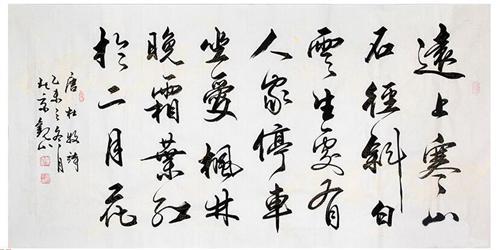 遠上寒山
石徑斜白
雲生處有
人家停車
坐愛楓林
晚霜葉紅
於二月花
唐杜牧詩
乙未之冬月
北京觀山